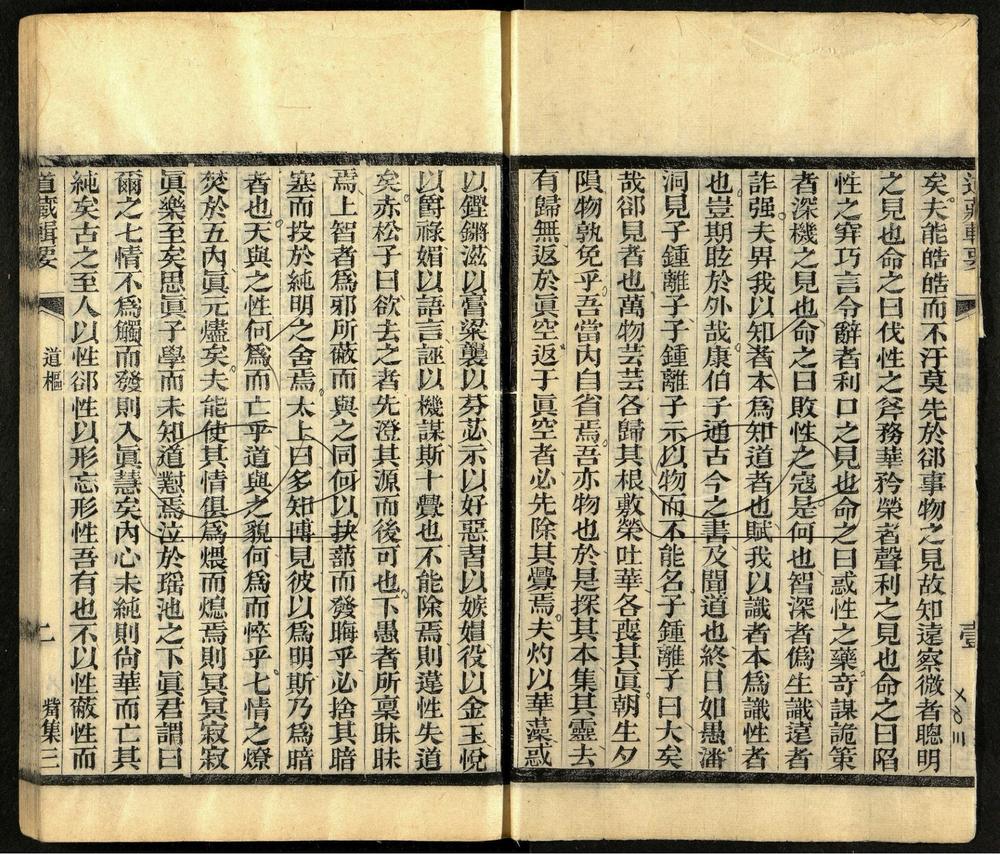 道藏輯要
壹
矣夫能皓皓而不汙莫先於郤事物之見故知遠察微者聰明
之見也命之曰伐性之斧務華矜榮者聲利之見也命之曰陷
性之穽巧言令辭者利口之見也命之曰惑性之藥奇謀詭策
者深機之見也命之曰敗性之寇是何也智深者僞生識遠者
詐强夫畀我以知者本爲知道者也賦我以識者本爲識性者
也豈期眩於外哉康伯子通古今之書及聞道也終日如愚潘
洞見子鍾離子子鍾離子示以物而不能名子鍾離子曰大矣
哉郤見者也萬物芸芸各歸其根敷榮吐華各喪其眞朝生夕
隕物孰免乎吾當內自省焉吾亦物也於是探其本集其靈去
有歸無返於眞空返于眞空者必先除其釁焉夫灼以華藻惑
以鏗鏘滋以膏粱襲以芬苾示以好惡習以嫉媢役以金玉悅
以爵祿媚以語言誣以機謀斯十釁也不能除焉則違性失道
矣赤松子曰欲去之者先澄其源而後可也下愚者所稟昧昧
焉上智者爲邪所蔽而與之同何以抉蔀而發晦乎必捨其暗
塞而投於純明之舍焉太上曰多知博見彼以爲明斯乃爲暗
者也天與之性何爲而亡乎道與之貌何爲而悴乎七情之燎
焚於五內眞元燼矣夫能使其情俱爲煨而熄焉則冥冥寂寂
眞樂至矣思眞子學而未知道懟焉泣於瑶池之下眞君謂曰
爾之七情不爲觸而發則入眞慧矣內心未純則尙華而亡其
純矣古之至人以性郤性以形忘形性吾有也不以性蔽性而
道藏輯要
道樞
二
集三